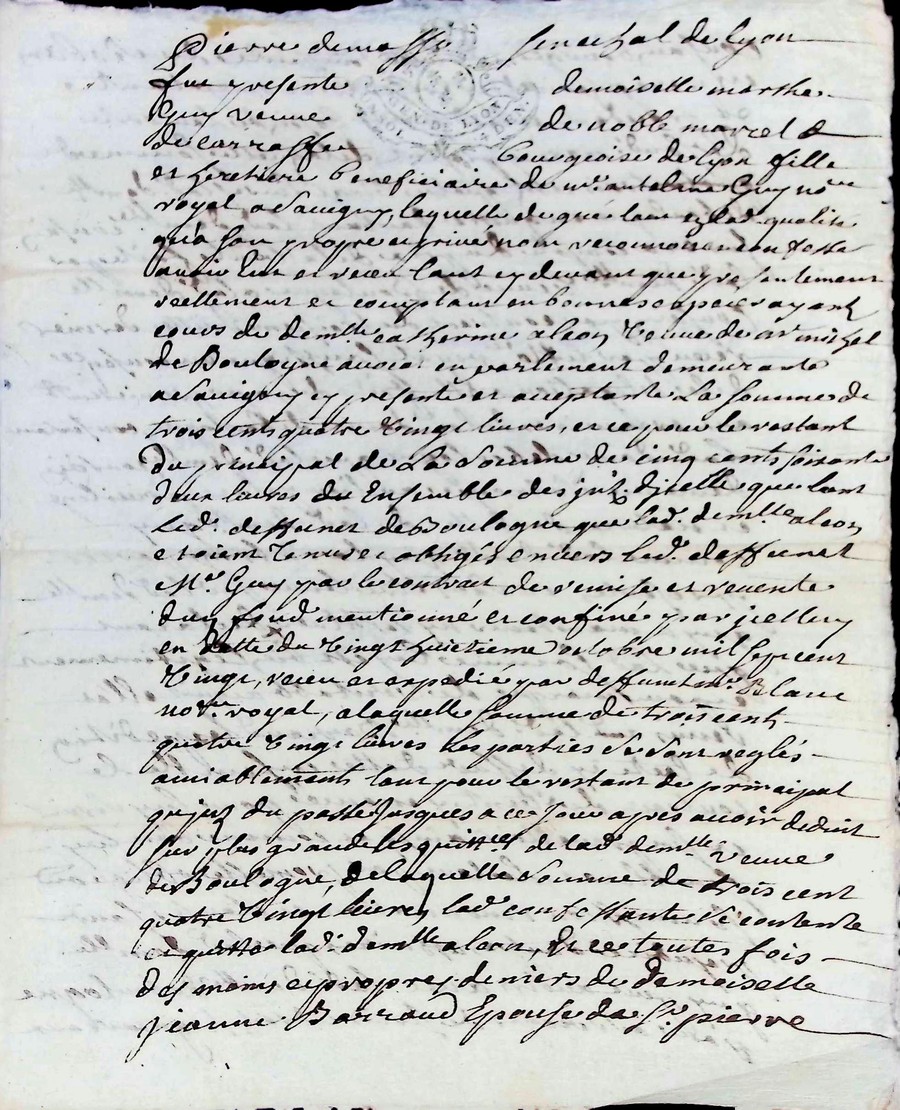 Pierre demasse senechal de lyon
fue presente demoiselle marthe
Guy veuve de noble marcel
de carraffe bourgeoise de lyon fille
et heretiere beneficiaire de mr. antelme Guy no.re
royal a Savigny, laquelle de gré tant en lad. qualité
qu'a son propre et privé nom reconnoit et confesse
avoir Eut et receu tant cy devant que presentement
reellement et comptant en bonnes especes ayant
cours de demlle. catherine aleon veuve de mr michel
de Boulogne avocat en parlement demeurante
a Savigny cy presente et aceptante La somme de
trois cents quatre vingt livres, et ce pour le restant
du principal de La Somme de cinq cents soixante
deux livres du Ensemble des jntz. d'jcelle que tant
led. deffunct de Boulogne que lad. demlle aleon
etoient tenus et obligés envers led. deffunct
Mr. Guy par le contract de remise et revente
d'un fond mentionné et confiné par jcelluy
en datte du vingt huitieme octobre mil sept cent
vingt, receu et expedié par deffunct mr. Blanc
no.re royal, a laquelle somme de trois cent
quatre vingt livres les parties se sont reglés
amiablements tant pour le restant de principal
qu'jntz du passé Jusques a ce Jour apres avoir deduit
sur plus grande les quittes de lad. demlle. veuve
de Boulogne, de laquelle Somme de trois cent
quatre vingt livres lad. confessante se contente
et quitte lad. demlle aleon, Et ce toutes fois
des mains et propres deniers de demoiselle
jeanne Barraud Epouse de Sr. pierre